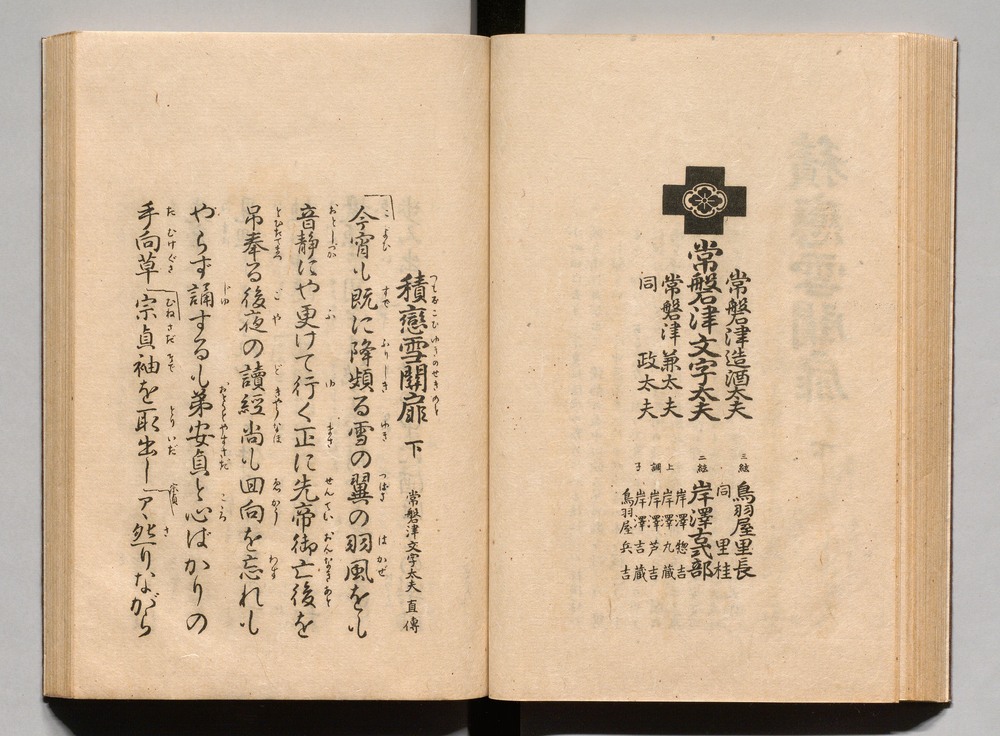 常磐津造酒太夫
常磐津文字太夫
常磐津兼太夫
同 政太夫
三絃 鳥羽屋里長
同 里桂
二絃 岸澤古式部
岸澤惣吉
上 岸澤九蔵
調 岸澤芦吉
子 岸澤吉蔵
鳥羽屋兵吉
積戀雪關扉 下 常磐津文字太夫直傳
今宵も既に降頻る雪の翼の羽風をも
音静にや更けて行く正に先帝御亡後を
吊奉る後夜の讀經尚も回向を忘れも
やらず誦するも弟安貞と心ばかりの
手向草 宗貞袖を取出し アヽ然りながら